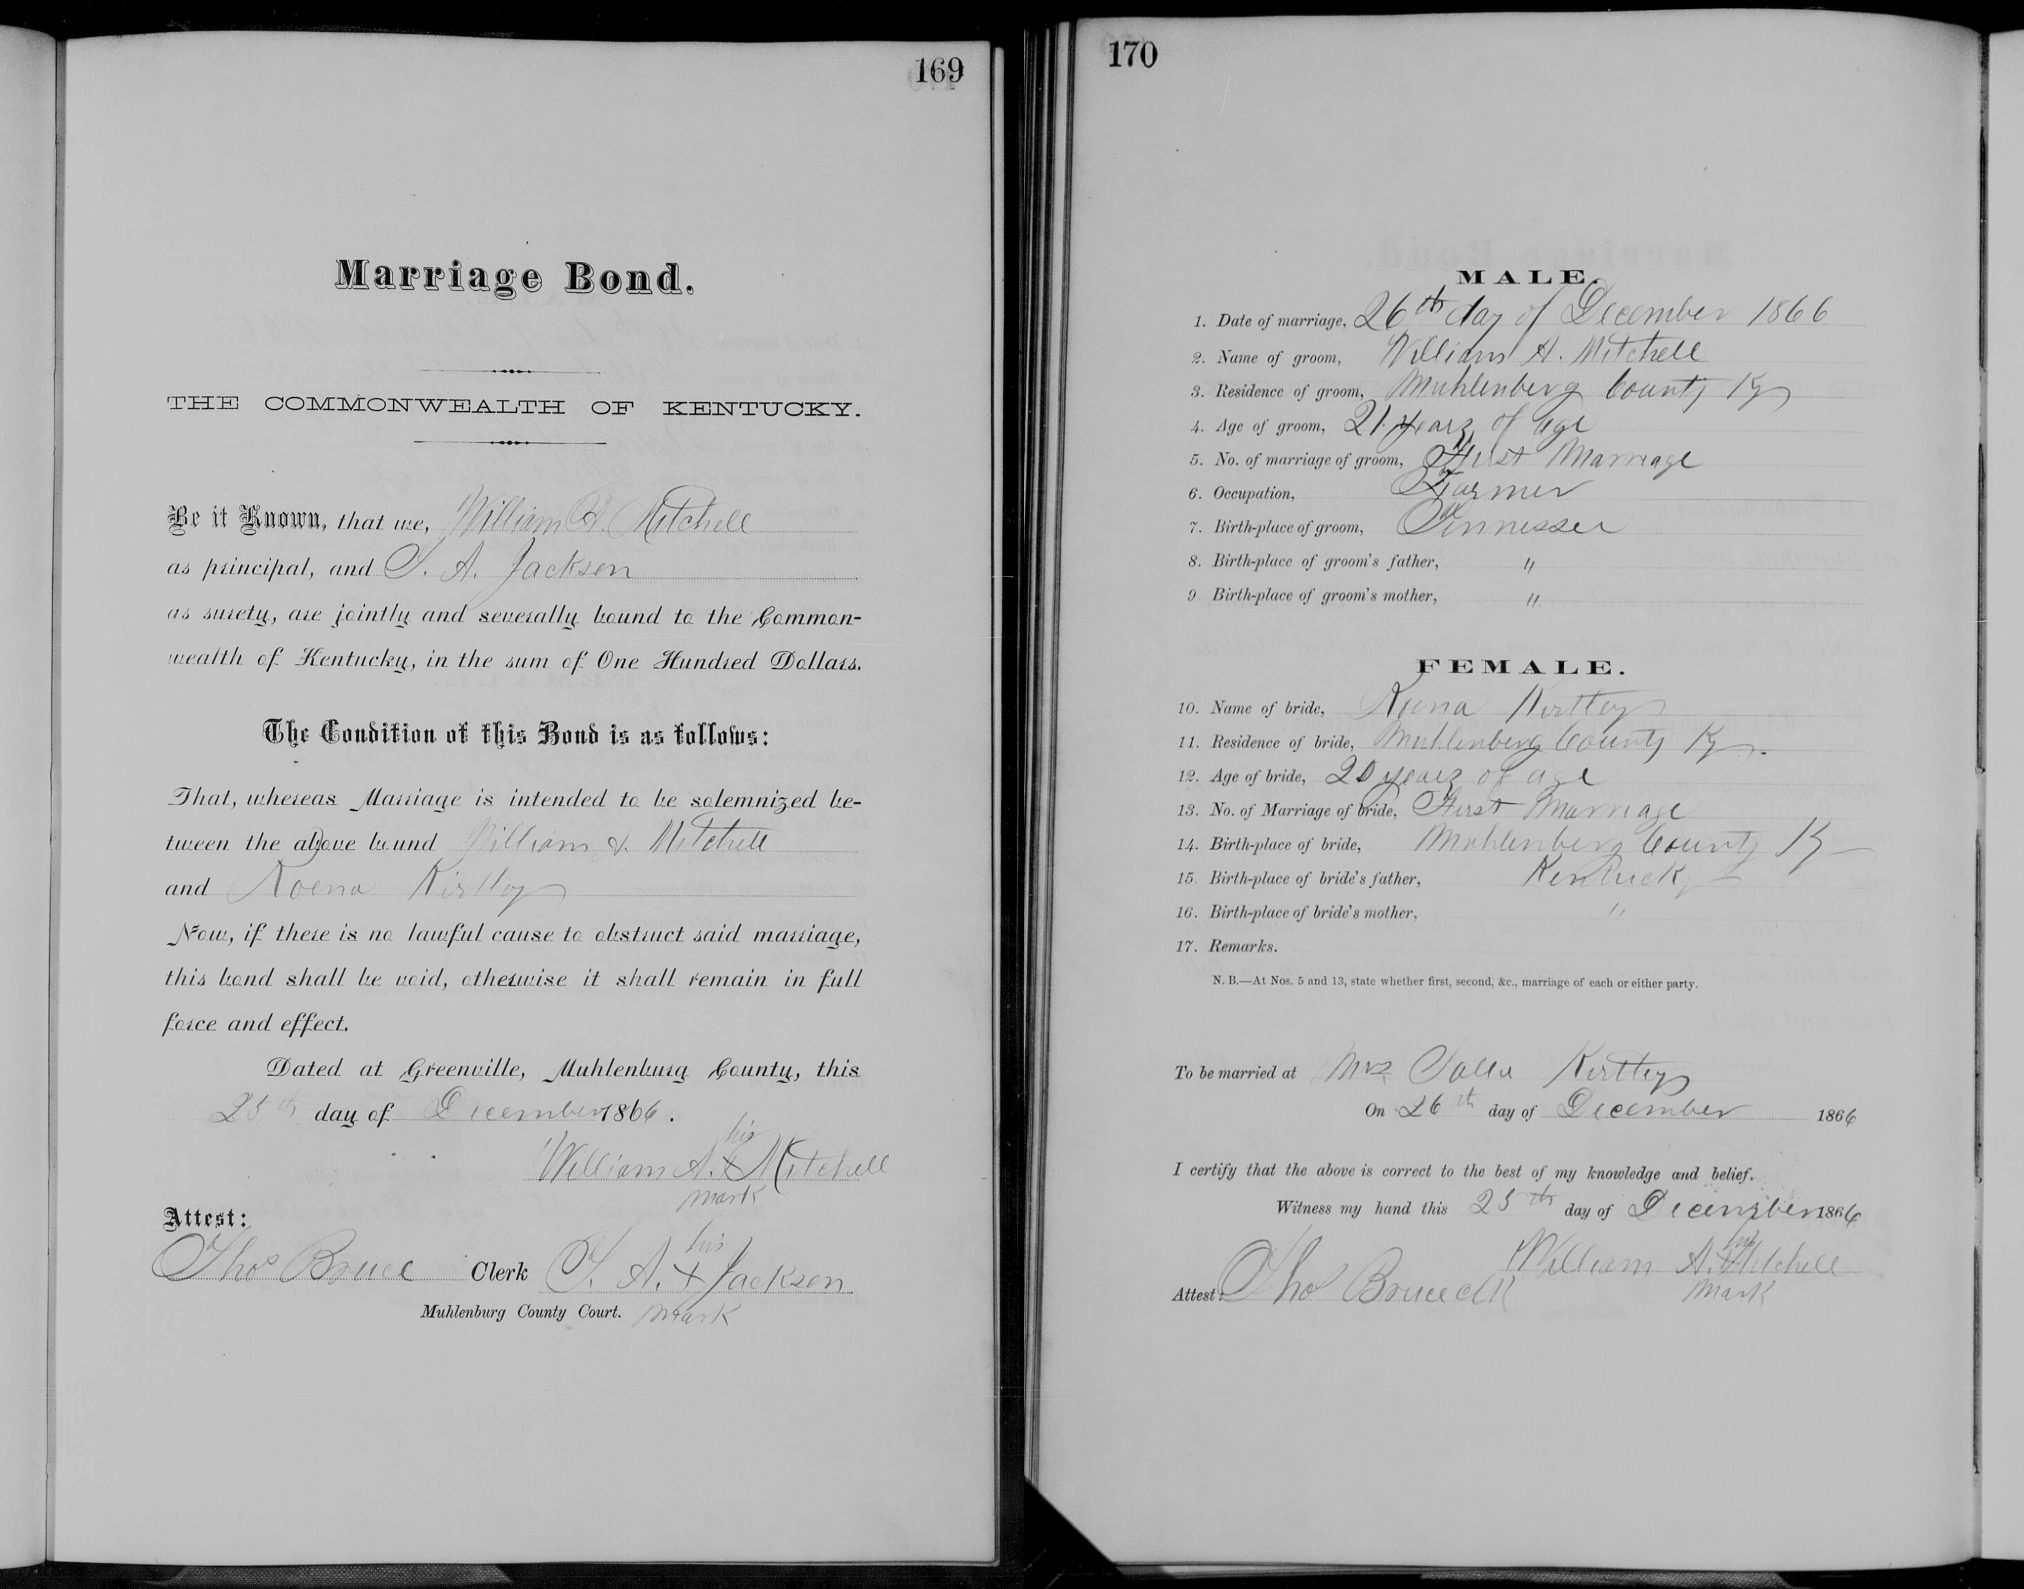 169
Marriage Bond.
THE COMMONWEALTH OF KENTUCKY.
Be it Known, that we, William A. Mitchell
as principal, and T. A. Jackson
as surety, are jointly and severally bound to the Common-
wealth of Kentucky, in the sum of One Hundred Dollars.
The Condition of this Bond is as follows:
That, whereas Marriage is intended to be solemnized be-
tween the above bound William A. Mitchell
and Roena Kirtley
Now, if there is no lawful cause to obstruct said marriage,
this bond shall be void, otherwise it shall remain in full
force and effect.
Dated at Greenville, Muhlenburg County, this
25th day of December 1866.
his
William A. X Mitchell
mark
Attest:
his
Thos Bruce Clerk T. A. X Jackson
Muhlenburg County Court. mark
170
MALE.
1. Date of marriage, 26th day of December 1866
2. Name of groom, William A. Mitchell
3. Residence of groom, Muhlenberg County Ky
4. Age of groom, 21 years of age
5. No. of marriage of groom, First Marriage
6. Occupation, Farmer
7. Birth-place of groom, Tennessee
8. Birth-place of groom's father, "
9. Birth-place of groom's mother, "
FEMALE.
10. Name of bride, Roena Kirtley
11. Residence of bride, Muhlenberg County Ky.
12. Age of bride, 20 years of age
13. No. of Marriage of bride, First Marriage
14. Birth-place of bride, Muhlenberg County Ky
15. Birth-place of bride's father, Kentucky
16. Birth-place of bride's mother, "
17. Remarks.
N. B.—At Nos. 5 and 13, state whether first, second, &c., marriage of each or either party.
To be married at Mrs Kirtleys
On 26th day of December 1866
I certify that the above is correct to the best of my knowledge and belief.
Witness my hand this 25th day of December 1866
his
William A. X Mitchell
Attest: Thos Bruce clk mark